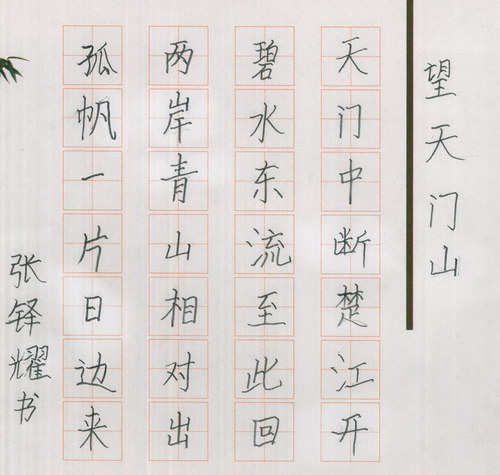 望天门山
天门中断楚江开
碧水东流至此回
两岸青山相对出
孤帆一片日边来
张铎耀书